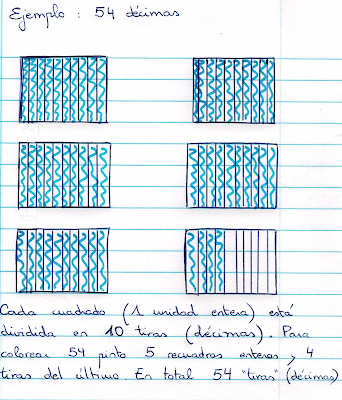 Ejemplo : 54 décimas
Cada cuadrado (1 unidad entera) está
dividida en 10 tiras (décimas). Para
colorear 54 pinto 5 recuadros enteros y 4
tiras del último. En total 54 "tiras" (décimas)